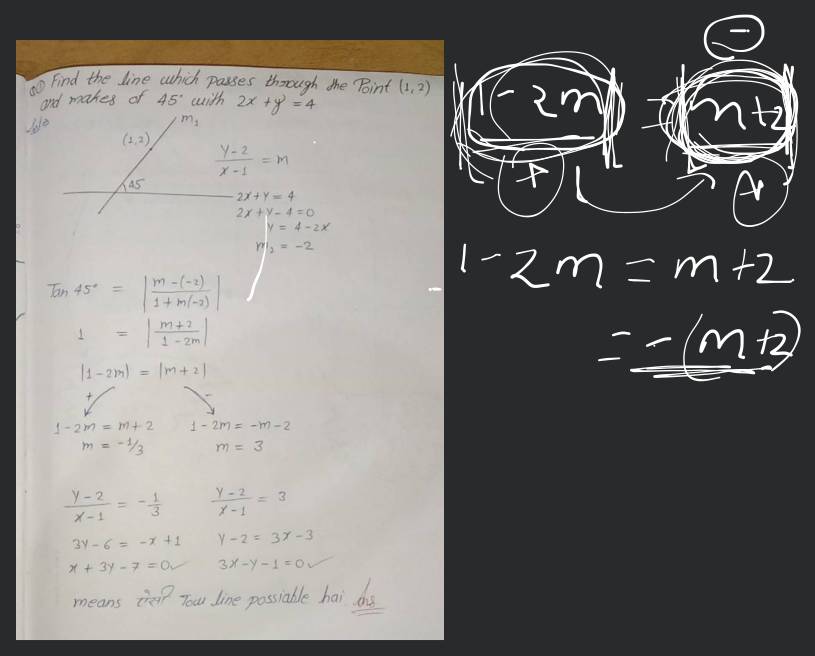 Q① Find the line which passes through the Point (1,2)
and makes of 45° with 2x + y = 4
Solo
m₁
(1,2)
y-2/x-1 = m
45
2x+y = 4
2x+y-4=0
y = 4-2x
m₂ = -2
Tan 45° = |m-(-2)/1+m(-2)|
1 = |m+2/1-2m|
|1-2m| = |m+2|
+ -
1-2m = m+2 1-2m = -m-2
m = -1/3 m = 3
y-2/x-1 = -1/3 y-2/x-1 = 3
3y-6 = -x+1 y-2 = 3x-3
x+3y-7=0✓ 3x-y-1=0✓
means ऐसी Tow line possiable hai Ans
-
|1-2m| = |m+2|
+
1-2m = m+2
= -(m+2)